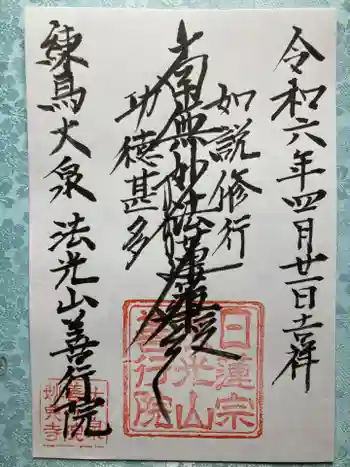 令和六年四月廿一日吉祥
如説修行
南無妙法蓮華経
功徳甚多
練馬大泉 法光山善行院
日蓮宗
法光山
善行院